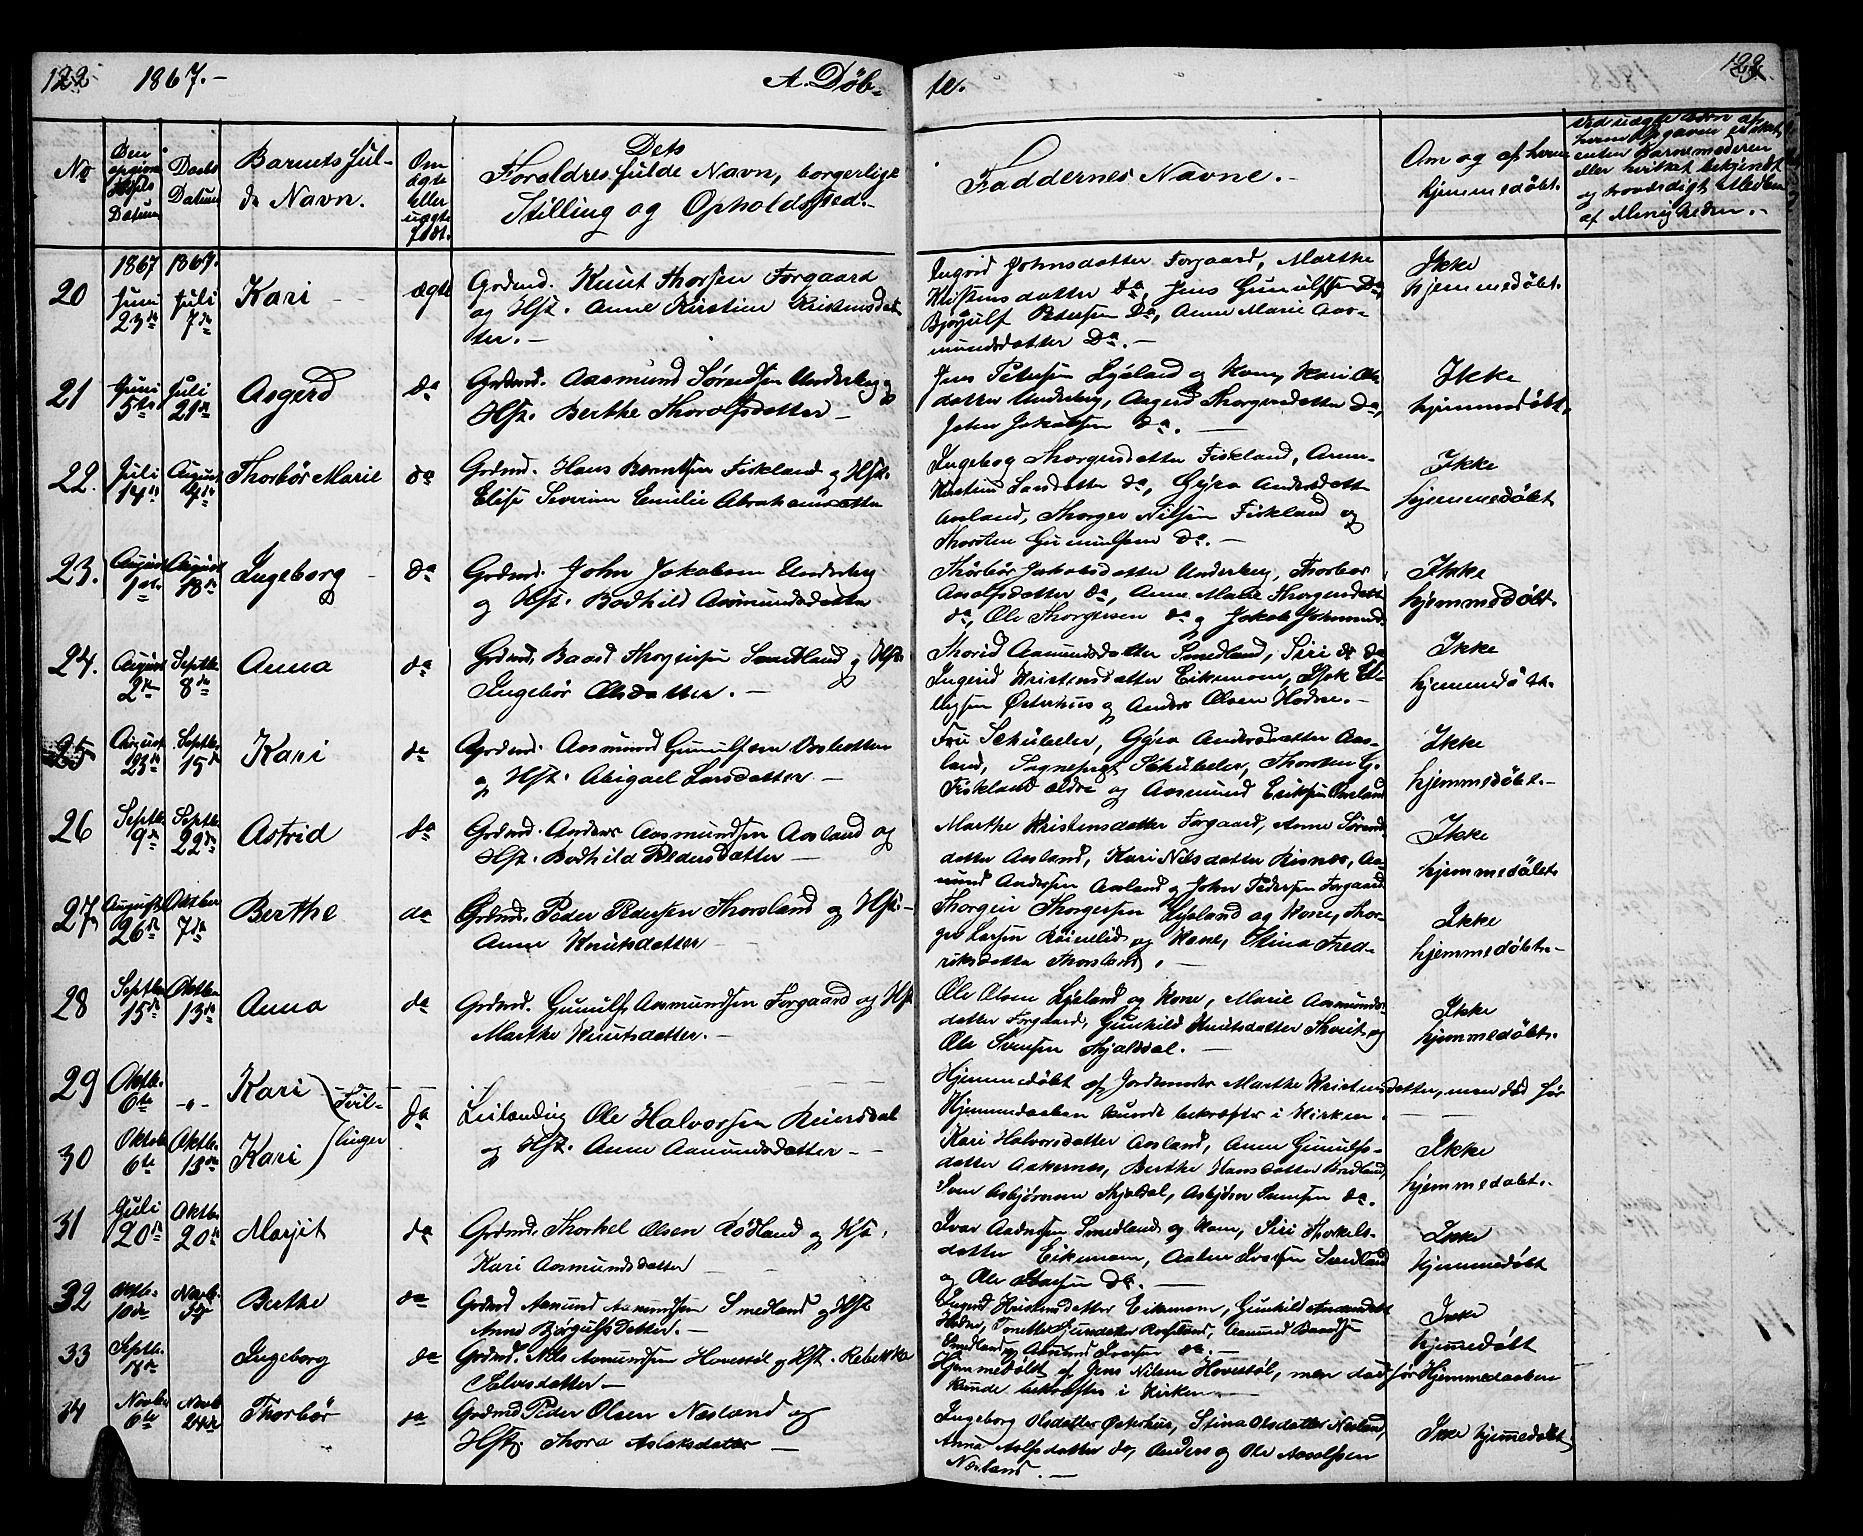 122 1867.-
A. Døb-
te.
123.
No
Den opgivne Fødsels Datum
Daabs Datum
Barnets ful-
de Navn.
Om ægte eller uægte født.
Dets
Forældres fulde Navn, borgerlige
Stilling og Opholdssted.-
Faddernes Navne.-
Om og af hvem
hjemmedøbt.
Ved uægte Børn af
hvem Opgaven er sket
enten Barnemoderen
eller hvilket bekjendt
og troværdigt Medlem
af Menigheden.-
20
1867 Juni 23de
1867. Juli 7de
Kari
ægte
Grdmd. Knut Thorsen Forgaard
og Hst. Anne Kirstine Kristensdat
ter.-
Ingrid Johnsdatter Forgaard, Marthe
Kristensdatter do, Jens Gunulfsen do,
Bjørgulf Petersen do, Anne Marie Aas-
mundsdatter do.-
Ikke
hjemmedøbt.
21
Juni 5te
Juli 21de
Asgerd
do
Grdmd. Aasmund Sørensen Underberg og
Hst. Berthe Thorolfsdatter-
Jens Petersen Lyeland og Kone, Kari Ols
datter Underberg, Asgerd Thorgersdatter do,
John Jakobsen do.-
Ikke
hjemmedøbt.
22.
Juli 14de
August 4de
Thorbør Marie
do
Grdmd. Hans Berntsen Fiskland og Hst.
Elise Severine Emilie Abrahamsdatter
Ingebog Thorgersdatter Fiskland, Anne
Kirstine Larsdatter do, Gyro Andersdatter
Aasland, Thorger Nilsen Fiskland og
Thorsten Gunulfsen do.-
Ikke
hjemmedøbt
23.
August 1ste
August 18de
Ingeborg
do
Grdmd. John Jakobsen Underberg
og Hst. Bodhild Aasmundsdatter
Thorbør Jakobsdatter Underberg, Thorbør
Asolfsdatter do, Anne Marie Thorgersdatt
do, Ole Thorgersen do og Jakob Johnsen do.
Ikke
hjemmedøbt.
24.
August 2de
Septbr 8de
Anna
do
Grdmd. Baard Thorgersen Smedland og Hst.
Ingebør Olsdatter.-
Thorid Aamundsdatter Smedland, Siri do do
Ingerid Kristensdatter Eikemom,
Østerhus og Anders Olsen Hodne.-
Ikke
hjemmedøbt.
25
August 23de
Septbr 15de
Kari
do
Grdmd. Aasmund Gunulfsen
og Hst. Abigael Larsdatter-
Fru Schübeler, Gyro Andersdatter Aas-
land, Sognepræst Schübeler, Thorsten G.
Fiskland ældre og Aasmund Eriksen Aasland
Ikke
hjemmedøbt.-
26
Septbr 9de
Septbr 22de
Astrid
do
Grdmd. Anders Aasmundsen Aasland og
Hst. Bodhild Pedersdatter-
Marthe Kristensdatter Forgaard, Anne Sørens
datter Aasland, Kari Nilsdatter Risnes, Aa-
mund Andersen Aasland og John Pedersen Forgaard
Ikke
hjemmedøbt.
27.
August 26de
Oktber 7de
Berthe
do
Grdmd. Peder Pedersen Thorsland og Hst.-
Anne Knutsdatter-
Thorgeir Thorgersen Lyeland og Kone, Thor-
ger Larsen Røinelid og Kone, Stina Fred-
riksdatter Thorsland.-
Ikke
hjemmedøbt.-
28
Septbr 15de
Oktber 13de
Anna
do
Grdmd. Gunulf Aasmundsen Forgaard og Hst
Marthe Knutsdatter.-
Ole Olsen Lyeland og Kone, Marie Aasmunds-
datter Forgaard, Gunhild Knutsdatter og
Ole Svensen Skjeldal.-
Ikke
hjemmedøbt.
29
Oktbr. 6te
-"-
Kari
Tvil-
linger
do
Leilænding Ole Halvorsen Reiersdal
og Hst. Anne Aamundsdatter--
Hjemmedøbt af Jordemoder Marthe Kristensdatter, men død før
Hjemmedaaben kunde bekræftes i Kirken.
30
Oktbr 6te
Oktbr. 13de
Kari
Kari Halvorsdatter Aasland, Anne Gunulfs-
datter Aakernes, Berthe Hansdatter Bredland,
Sven Asbjørnsen Skjeldal, Asbjørn Svensen do.
Ikke
hjemmedøbt.
31
Juli 20de
Oktbr. 20de
Marjit
do
Grdmd. Thorkel Olsen Rødland og Hst.
Kari Aasmundsdatter
Ivar Aadnesen Smedland og Kone, Siri Thorkels-
datter Eikemom, Aanen Ivarsen Smedland
og Ole Ivarsen do.-
Ikke
hjemmedøbt
32
Oktbr. 10de
Novbr. 3die
Berthe
do
Grdmd Aamund Aamundsen Smedland og Hst
Anne Bjørgulfsdatter.-
Ingrid Kristensdatter Eikemom, Gunhild Andersdatt
Hodne, Tonette Gundersdatter Rosseland, Aamund Baardsen
Smedland og Aamund Ivarsen do.-
Ikke
hjemedøbt
33
Septbr. 18de
Ingeborg
do
Grdmd. Nils Aamundsen Hovestøl og Hst. Rebekka
Salvesdatter-
Hjemmedøbt af Jens Nilsen Hovestøl, men død før Hjemmedaaben
kunde bekræftes i Kirken.-
34
Novbr 6te
Novbr 24de
Thorbør
do
Grdmd Peder Olsen Næsland og
Hst. Thora Aslaksdatter-
Ingeborg Olsdatter Østerhus, Stina Olsdatter Nesland,
Anna Asolfsdatter do, Anders og Ole Asolfsen
Næsland.-
Ikke hjemedøbt